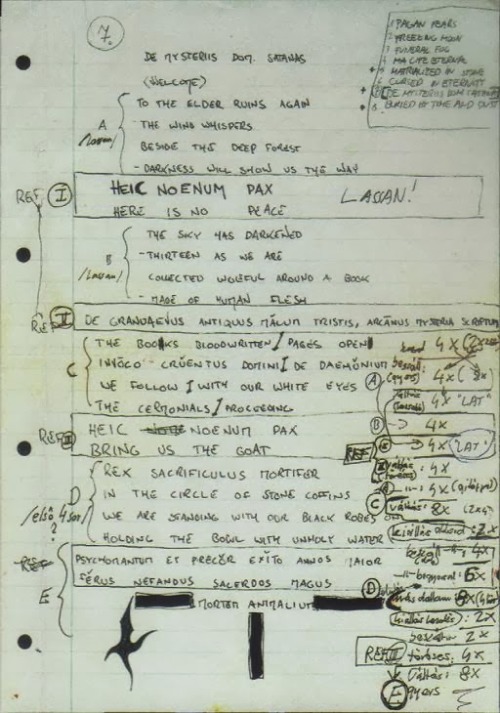 7.
DE MYSTERIIS DOM. SATANAS
1 PAGAN FEARS
2 FREEZING MOON
3 FUNERAL FOG
4 MA LIFE ETERNAL
5 MATRIALIZED IN STONE
6 CURSED IN ETERNITY
7 DE MYSTERIIS DOM SATANAS
8. BURIED BY TIME AND DUST
(WELCOME)
TO THE ELDER RUINS AGAIN
A
- THE WIND WHISPERS
/lassan/
BESIDE THE DEEP FOREST
- DARKNESS WILL SHOW US THE WAY
REF I
HEIC NOENUM PAX
LASSAN!
HERE IS NO PEACE
THE SKY HAS DARKENED
B
- THIRTEEN AS WE ARE
/lassan/
COLLECTED WOLEFUL AROUND A BOOK
- MADE OF HUMAN FLESH
REF II
DE GRANDAEVUS ANTIQUUS MĂLUM TRISTIS, ARCĀNUS MYSTERIA SCRIPTUM
C
THE BOOKS BLOODWRITTEN / PAGES OPEN
INVŎCO CRŬENTUS DOMINI I DE DAEMŎNIUM
WE FOLLOW I WITH OUR WHITE EYES
THE CERMONIALS / PROCEEDING
REF III
HEIC NOENUM PAX
BRING US THE GOAT
D
REX SACRIFICULUS MORTIFER
IN THE CIRCLE OF STONE COFFINS
/első 4 sor/
?
WE ARE STANDING WITH OUR BLACK ROBES ON
HOLDING THE BOWL WITH UNHOLY WATER
REF
E
PSYCHOMANTUM ET PRECŎR EXĬTO ANNOS MAIOR
FĔRUS NEFANDUS SACERDOS MAGUS
MORTEM ANIMALIUM
4X
A
4X (8x)
4X "LAT"
B
4X
REF
4X "LAT"
4X
4X
C
váltás: 8X
2X
4X
6X
D
8X
2X
2X
REF III
4X
váltás: 8X
E
gyors